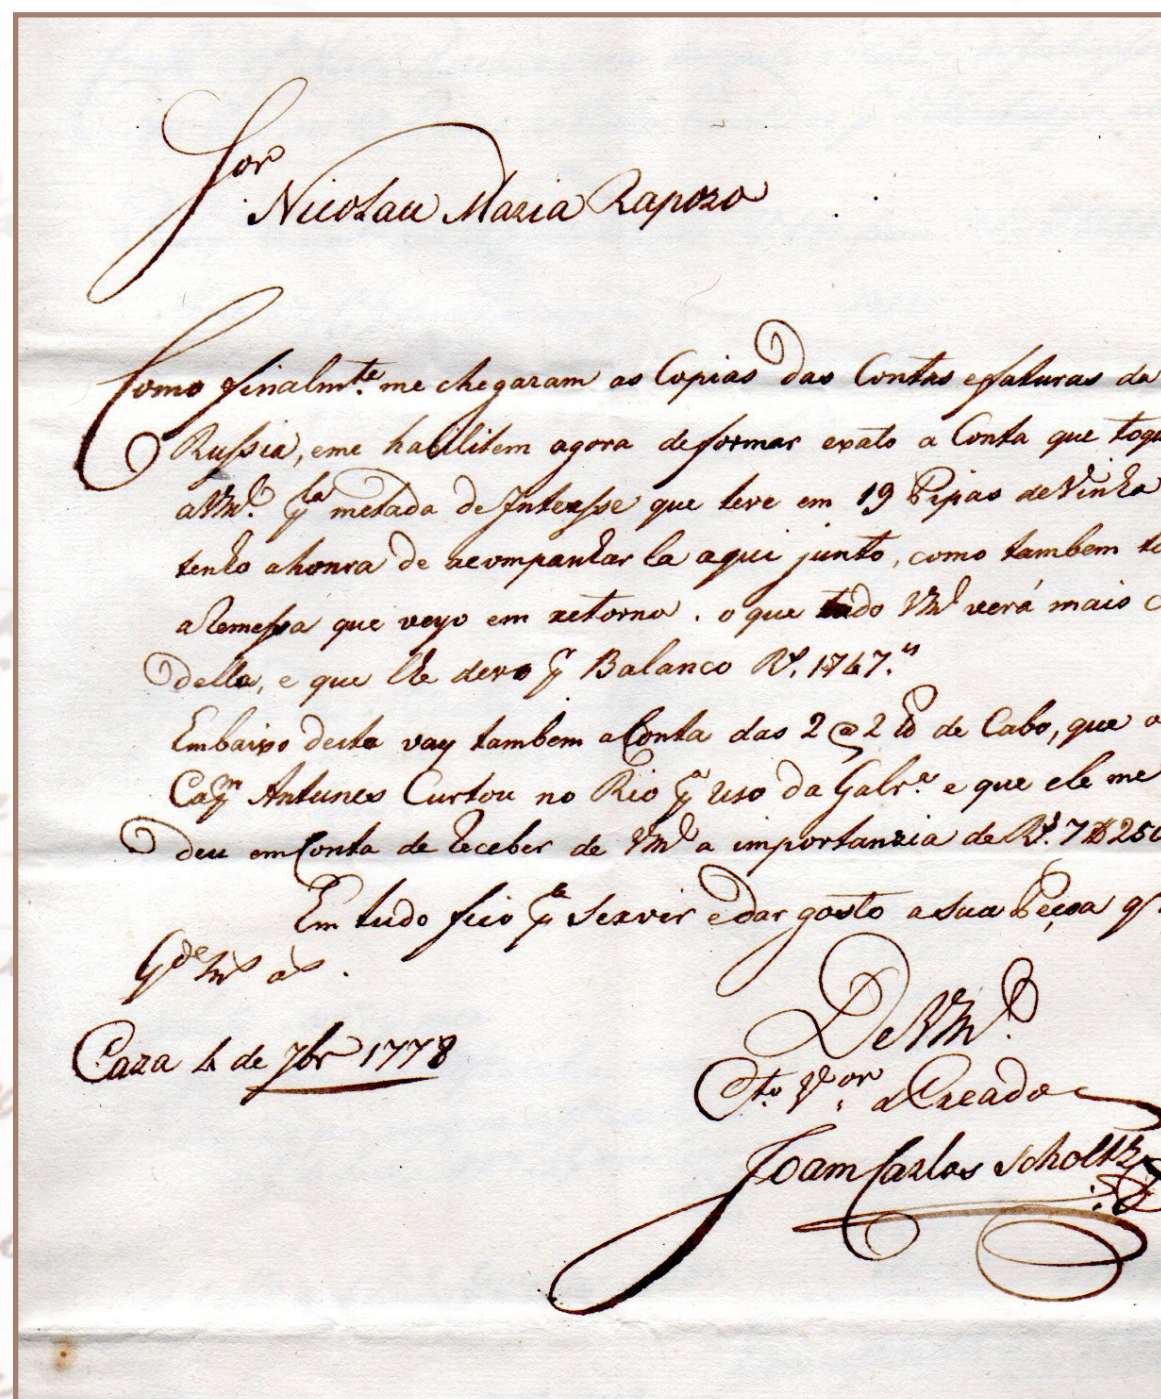 Sor
Nicolau Maria Rapozo
Como finalmte. me chegaram as Copias das Contas e faturas da
Russia, e me habilitem agora de formar exato a Conta que toqu
a Vmce. pla metada de Interesse que teve em 19 Pipas de Vinho
tenho a honra de acompanhar la aqui junto, como tambem to
a Remessa que veyo em retorno. o que tudo Vmce verá mais c
della, e que lhe devo pr Balanco Rs. 1767."
Embaixo desta vay tambem a Conta das 2 @ 2 lb de Cabo, que o
Capm Antunes Curtou no Rio pa uso da Galra. e que ele me
deu em Conta de Receber de Vmce a importanzia de Rs. 7$250
Em tudo fico pa servir e dar gosto a sua Peçoa q
Gde ms as.
Caza 4 de 7br 1778
De Vmce.
Mto. Vor. a Creado
Joam Carlos Scholtz